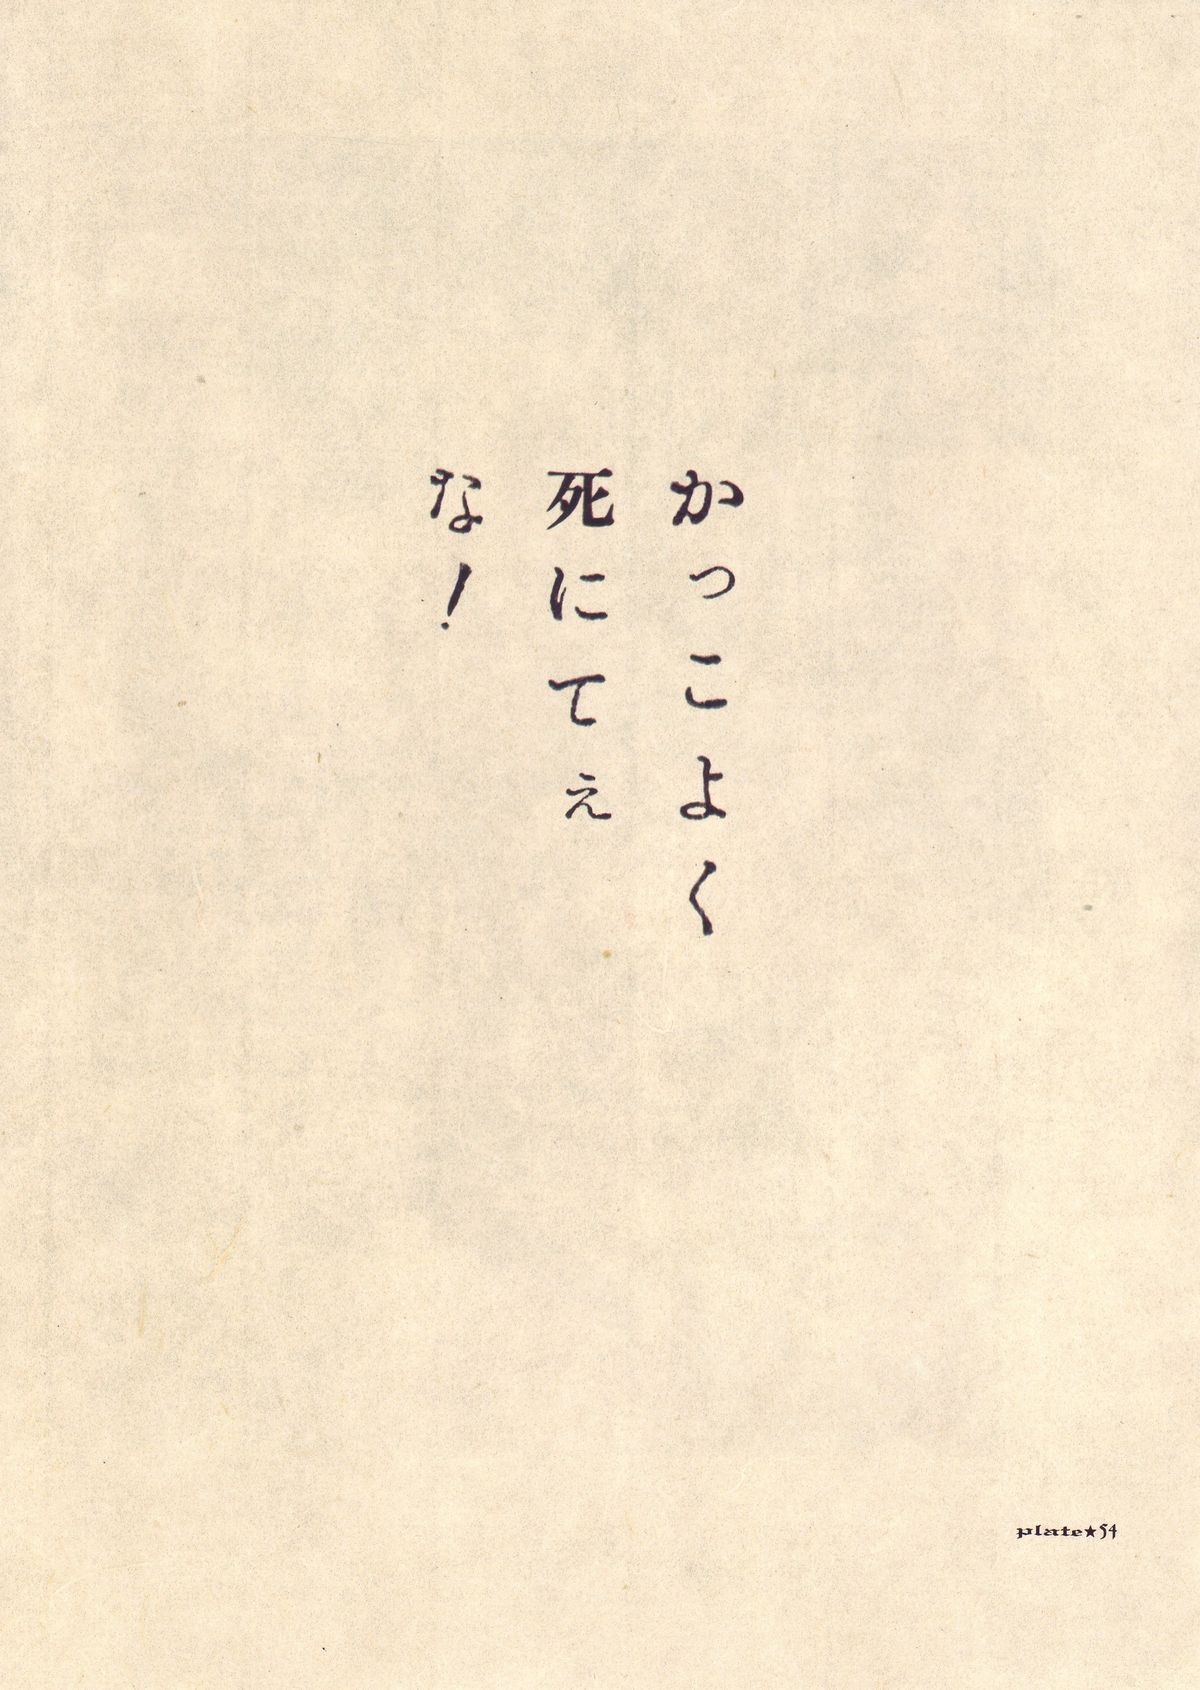 かっこよく
死にてぇ
な！
plate★54